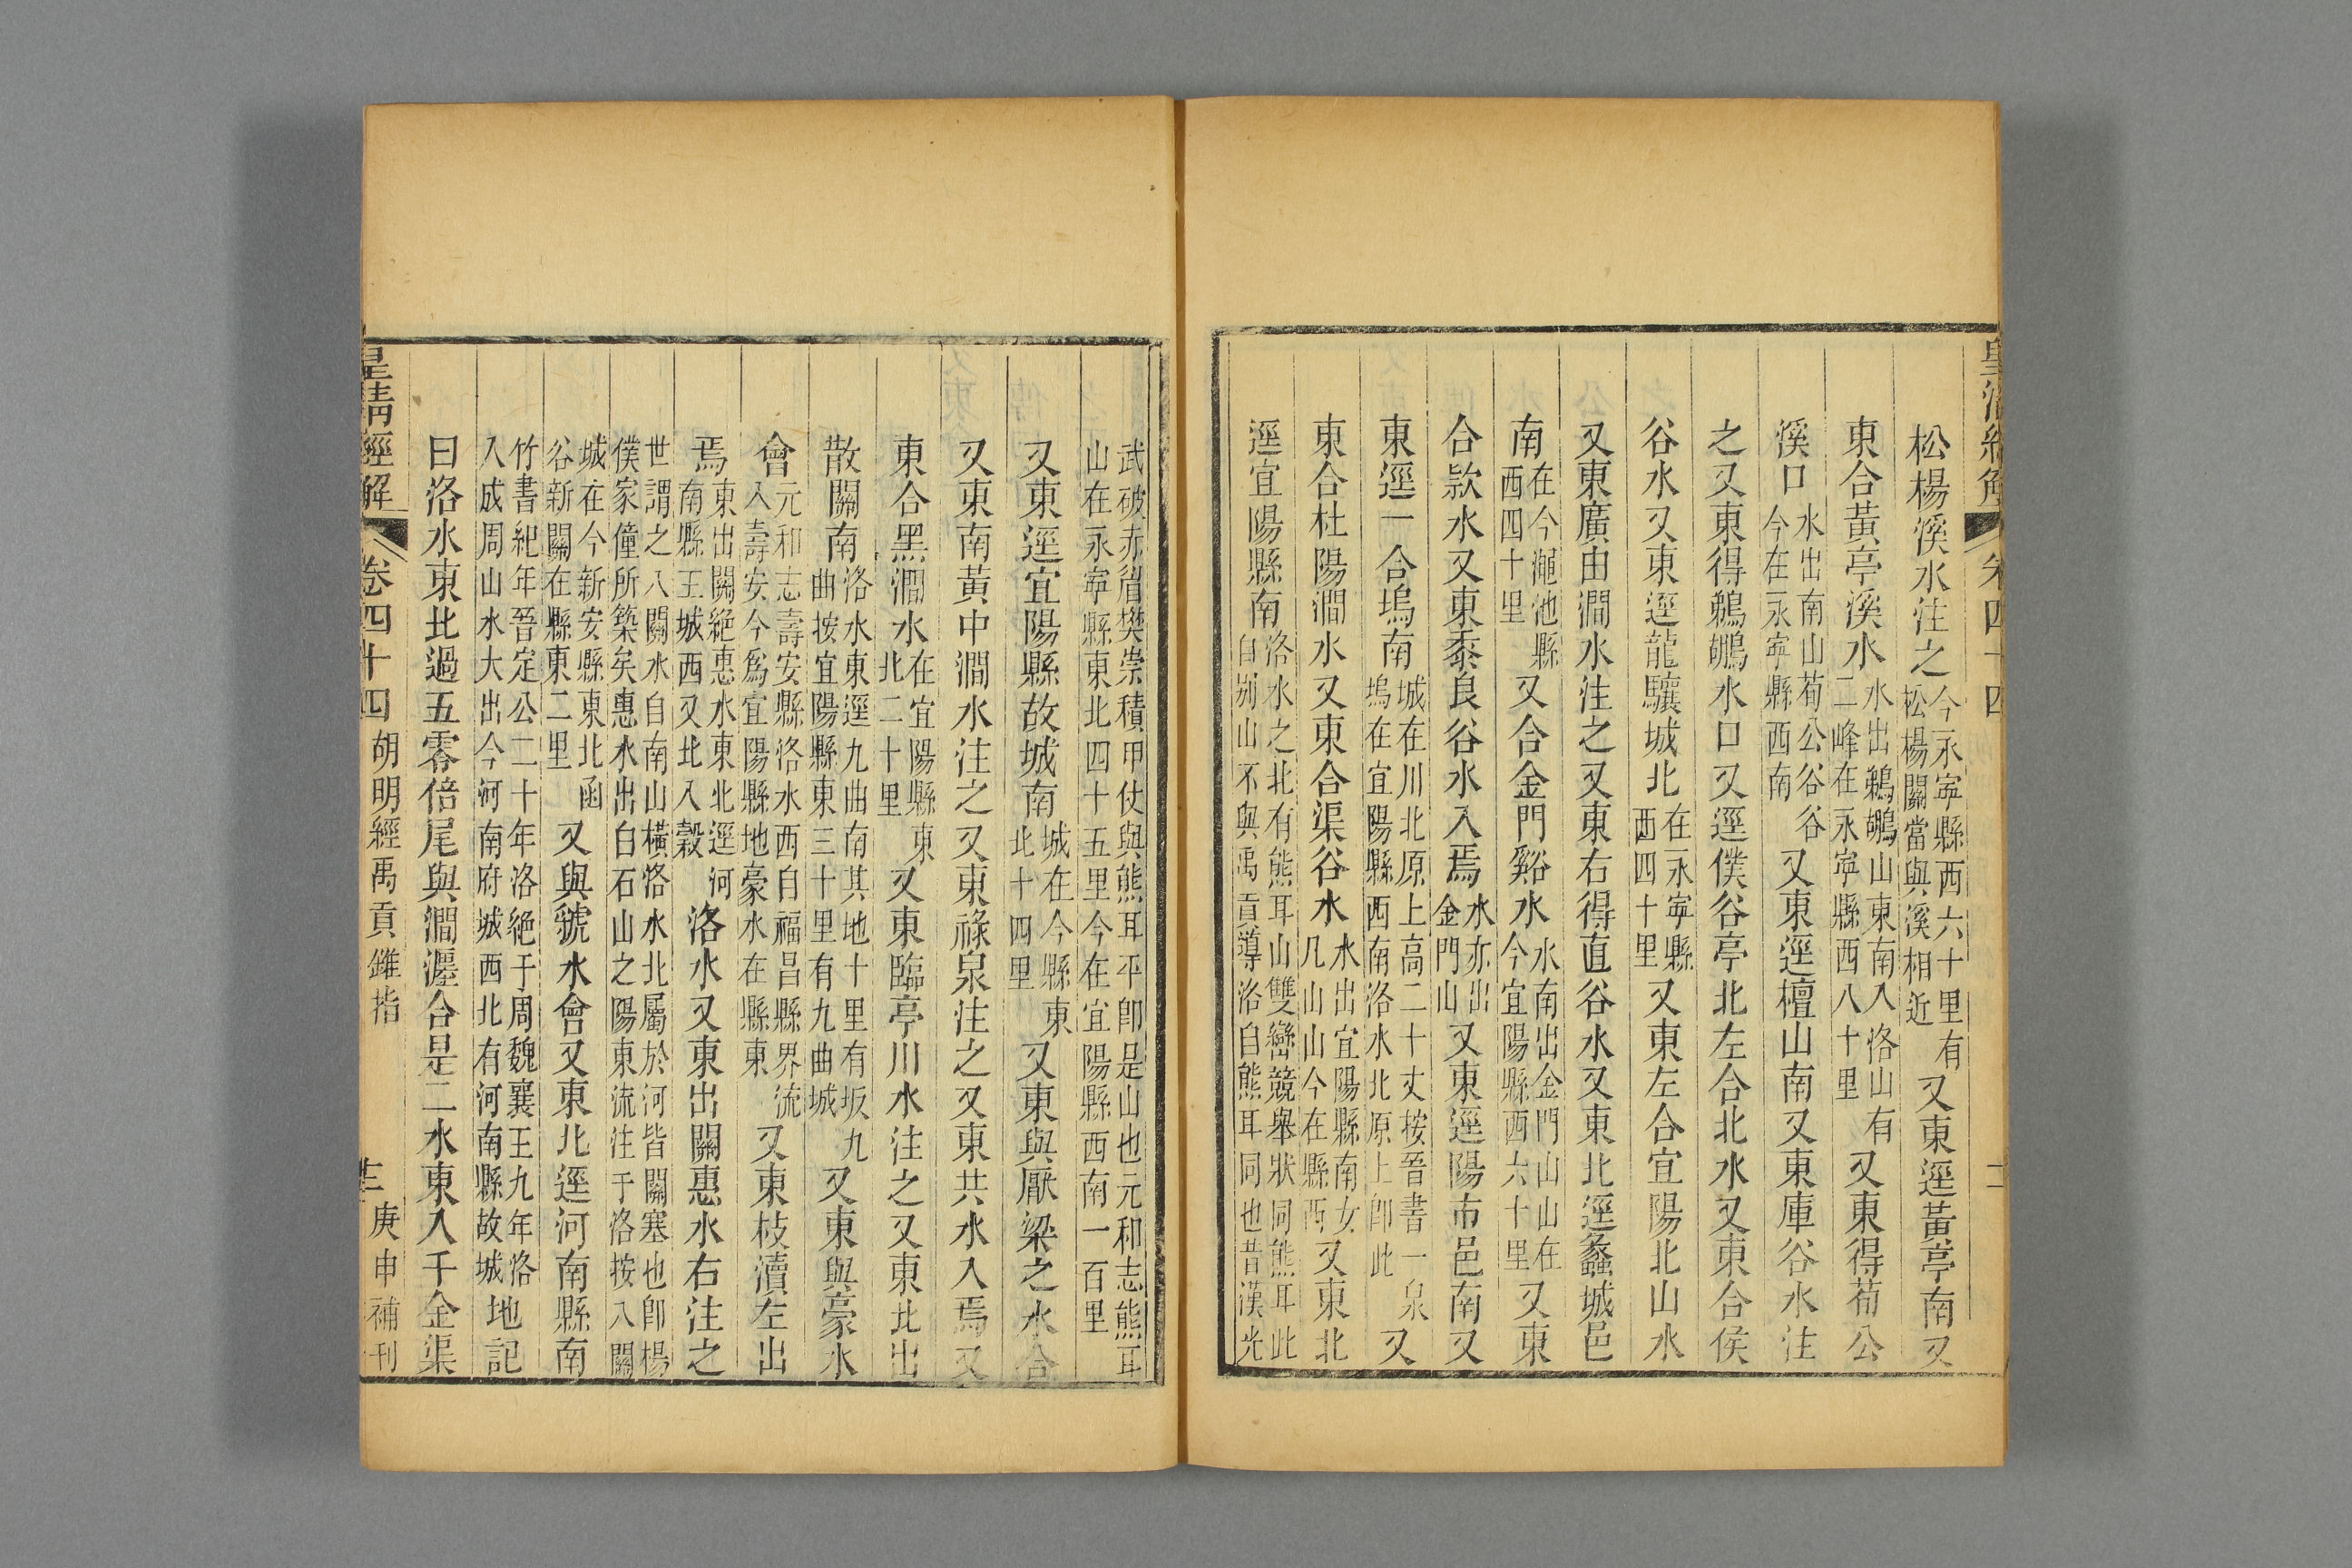 皇清經解 卷四十四 二
松楊溪水注之今永寧縣西六十里有松楊關當與溪相近又東逕黃亭南又
東合黃亭溪水水出鵜鶘山東南入洛山有二峰在永寧縣西八十里又東得荀公
溪口水出南山荀公谷谷今在永寧縣西南又東逕檀山南又東庫谷水注
之又東得鵜鶘水口又逕僕谷亭北左合北水又東合侯
谷水又東逕龍驤城北在永寧縣西四十里又東左合宜陽北山水
又東廣由澗水注之又東右得直谷水又東北逕蠡城邑
南在今澠池縣西四十里又合金門谿水水南出金門山山在今宜陽縣西六十里又東
合款水又東黍良谷水入焉水亦出金門山又東逕陽市邑南又
東逕一合塢南城在川北原上高二十丈按晉書一泉塢在宜陽縣西南洛水北原上卽此又
東合杜陽澗水又東合渠谷水水出宜陽縣南女几山山今在縣西又東北
逕宜陽縣南洛水之北有熊耳山雙巒競舉狀同熊耳此自別山不與禹貢導洛自熊耳同也昔漢光
武破赤眉樊崇積甲仗與熊耳平卽是山也元和志熊耳山在永寧縣東北四十五里今在宜陽縣西南一百里
又東逕宜陽縣故城南城在今縣東北十四里又東與厭梁之水合
又東南黃中澗水注之又東祿泉注之又東共水入焉又
東合黑澗水在宜陽縣東北二十里又東臨亭川水注之又東北出
散關南洛水東逕九曲南其地十里有坂九曲按宜陽縣東三十里有九曲城又東與豪水
會元和志壽安縣洛水西自福昌縣界流入壽安今爲宜陽縣地豪水在縣東又東枝瀆左出
焉東出關絕惠水東北逕河南縣王城西又北入穀洛水又東出關惠水右注之
世謂之八關水自南山橫洛水北屬於河皆關塞也卽楊僕家僮所築矣惠水出白石山之陽東流注于洛按八關
城在今新安縣東北函谷新關在縣東二里又與虢水會又東北逕河南縣南
竹書紀年晉定公二十年洛絕于周魏襄王九年洛入成周山水大出今河南府城西北有河南縣故城地記
曰洛水東北過五零倍尾與澗瀍合是二水東入千金渠
皇清經解 卷四十四 胡明經禹貢錐指 二 庚申補刊